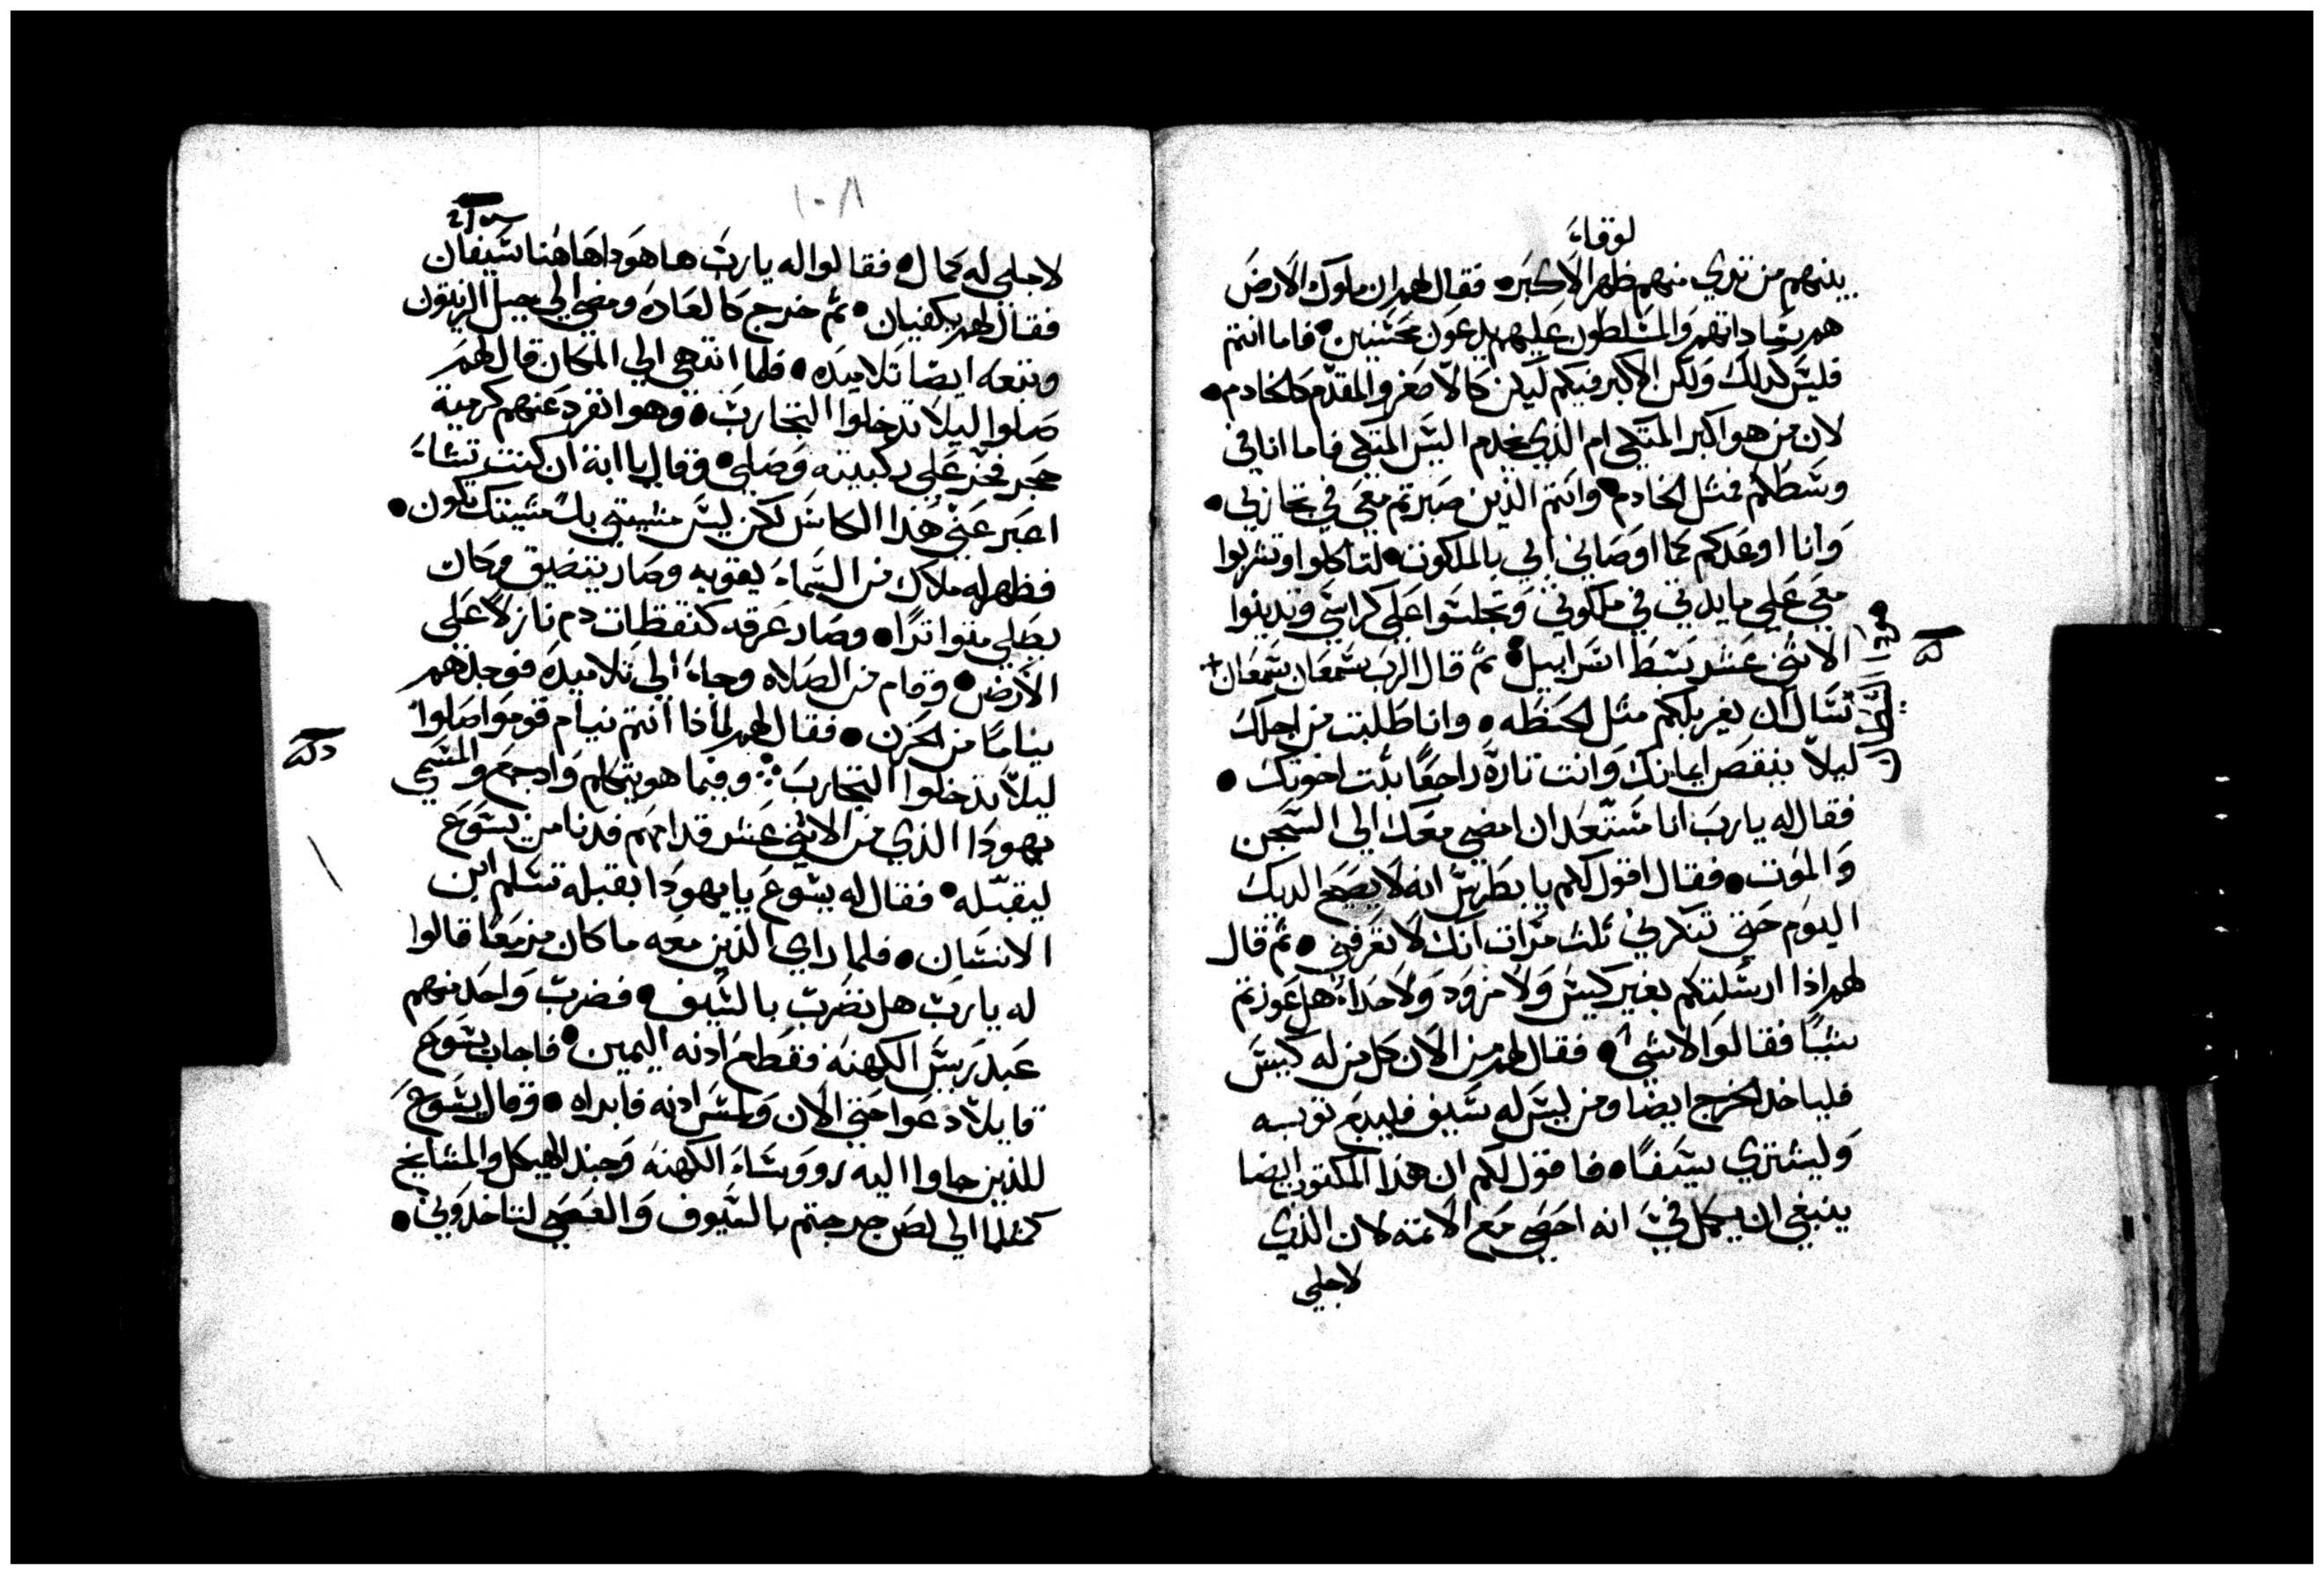 لوقا
بينهم من تري منهم ظهر الاكبر • فقال لهم ان ملوك الارض
هم ساداتهم والمسلطون عليهم يدعون محسنين • فاما انتم
فليس كدلك ولكن الاكبر فيكم ليكن كالاصغر والمقدم كالخادم •
لان من هو اكبر المتكي ام الذي يخدم اليس المتكي فاما انا في
وسطكم فمثل الخادم • وانتم الذين صبرتم معي في تجاربي •
وانا اوعدكم كما اوصاني ابي بالملكوت • لتاكلوا وتشربوا
معي علي مايدتي في ملكوتي وتجلسوا علي كراسي وتدينوا
الاثني عشر سبط اسراييل • ثم قال الرب سمعان سمعان +
تسال ان يغربلكم مثل الحنطه • وانا طلبت من اجلك
ليلا ينقص ايمانك وانت تارة راجعا ثبت اخوتك •
فقال له يارب انا مستعد ان امضي معك الي السجن
والموت • فقال اقول لكم يا بطرس انه لا يصيح الديك
اليوم حتي تنكرني ثلث مرات انك لا تعرفني • ثم قال
لهم اذا ارسلتكم بغير كيس ولا مزود ولا حداء هل عوزتم
شيا فقالوا لا شي • فقال لهم من الان كل من له كيس
فلياخد الخرج ايضا ومن ليس له سيف فليبع توبه
وليشتري سيفا • فاقول لكم ان هذا المكتوب ايضا
ينبغي ان يكمل في انه احصي مع الاتمه لان الذي
لاجلي
١٠٨
لاجلي له كمال • فقالوا له يارب ها هودا هاهنا سيفان
فقال لهم يكفيان • ثم خرج كالعاده ومضي الي جبل الزيتون
وتبعه ايضا تلاميده • فلما انتهي الي المكان قال لهم
صلوا ليلا تدخلوا التجارب • وهو انفرد عنهم كرمية
حجر فخر علي ركبتيه وصلي • وقال يا ابة ان كنت تشاء
اعبر عني هذا الكاس لكن ليس مشيتي بل مشيتك تكون •
فظهر له ملاك من السماء ليقويه وصار يتضيق وكان
يصلي متواترا • وصار عرقه كنقطات دم نازلا علي
الارض • وقام من الصلاه وجاء الي تلاميده فوجدهم
نياما من الحزن • فقال لهم لماذا انتم نيام قوموا صلوا
ليلا تدخلوا التجارب ❖ وفيما هو يتكلم واد جمع والمسمي
يهودا الذي من الاثني عشر قدامهم فدنا من يسوع
ليقبله • فقال له يسوع يا يهودا بقبله تسلم ابن
الانسان • فلما راي الذين معه ما كان مزمعا قالوا
له يارب هل نضرب بالسيف • فضرب واحد منهم
عبد ريس الكهنه فقطع ادنه اليمين • فاجاب يسوع
قايلا دعوا حتي الان ولمس ادنه فابراه • وقال يسوع
للذين جاوا اليه رووساء الكهنه وجند الهيكل والمشايخ
كمثلما الي لص خرجتم بالسيوف والعصي لتاخدوني •